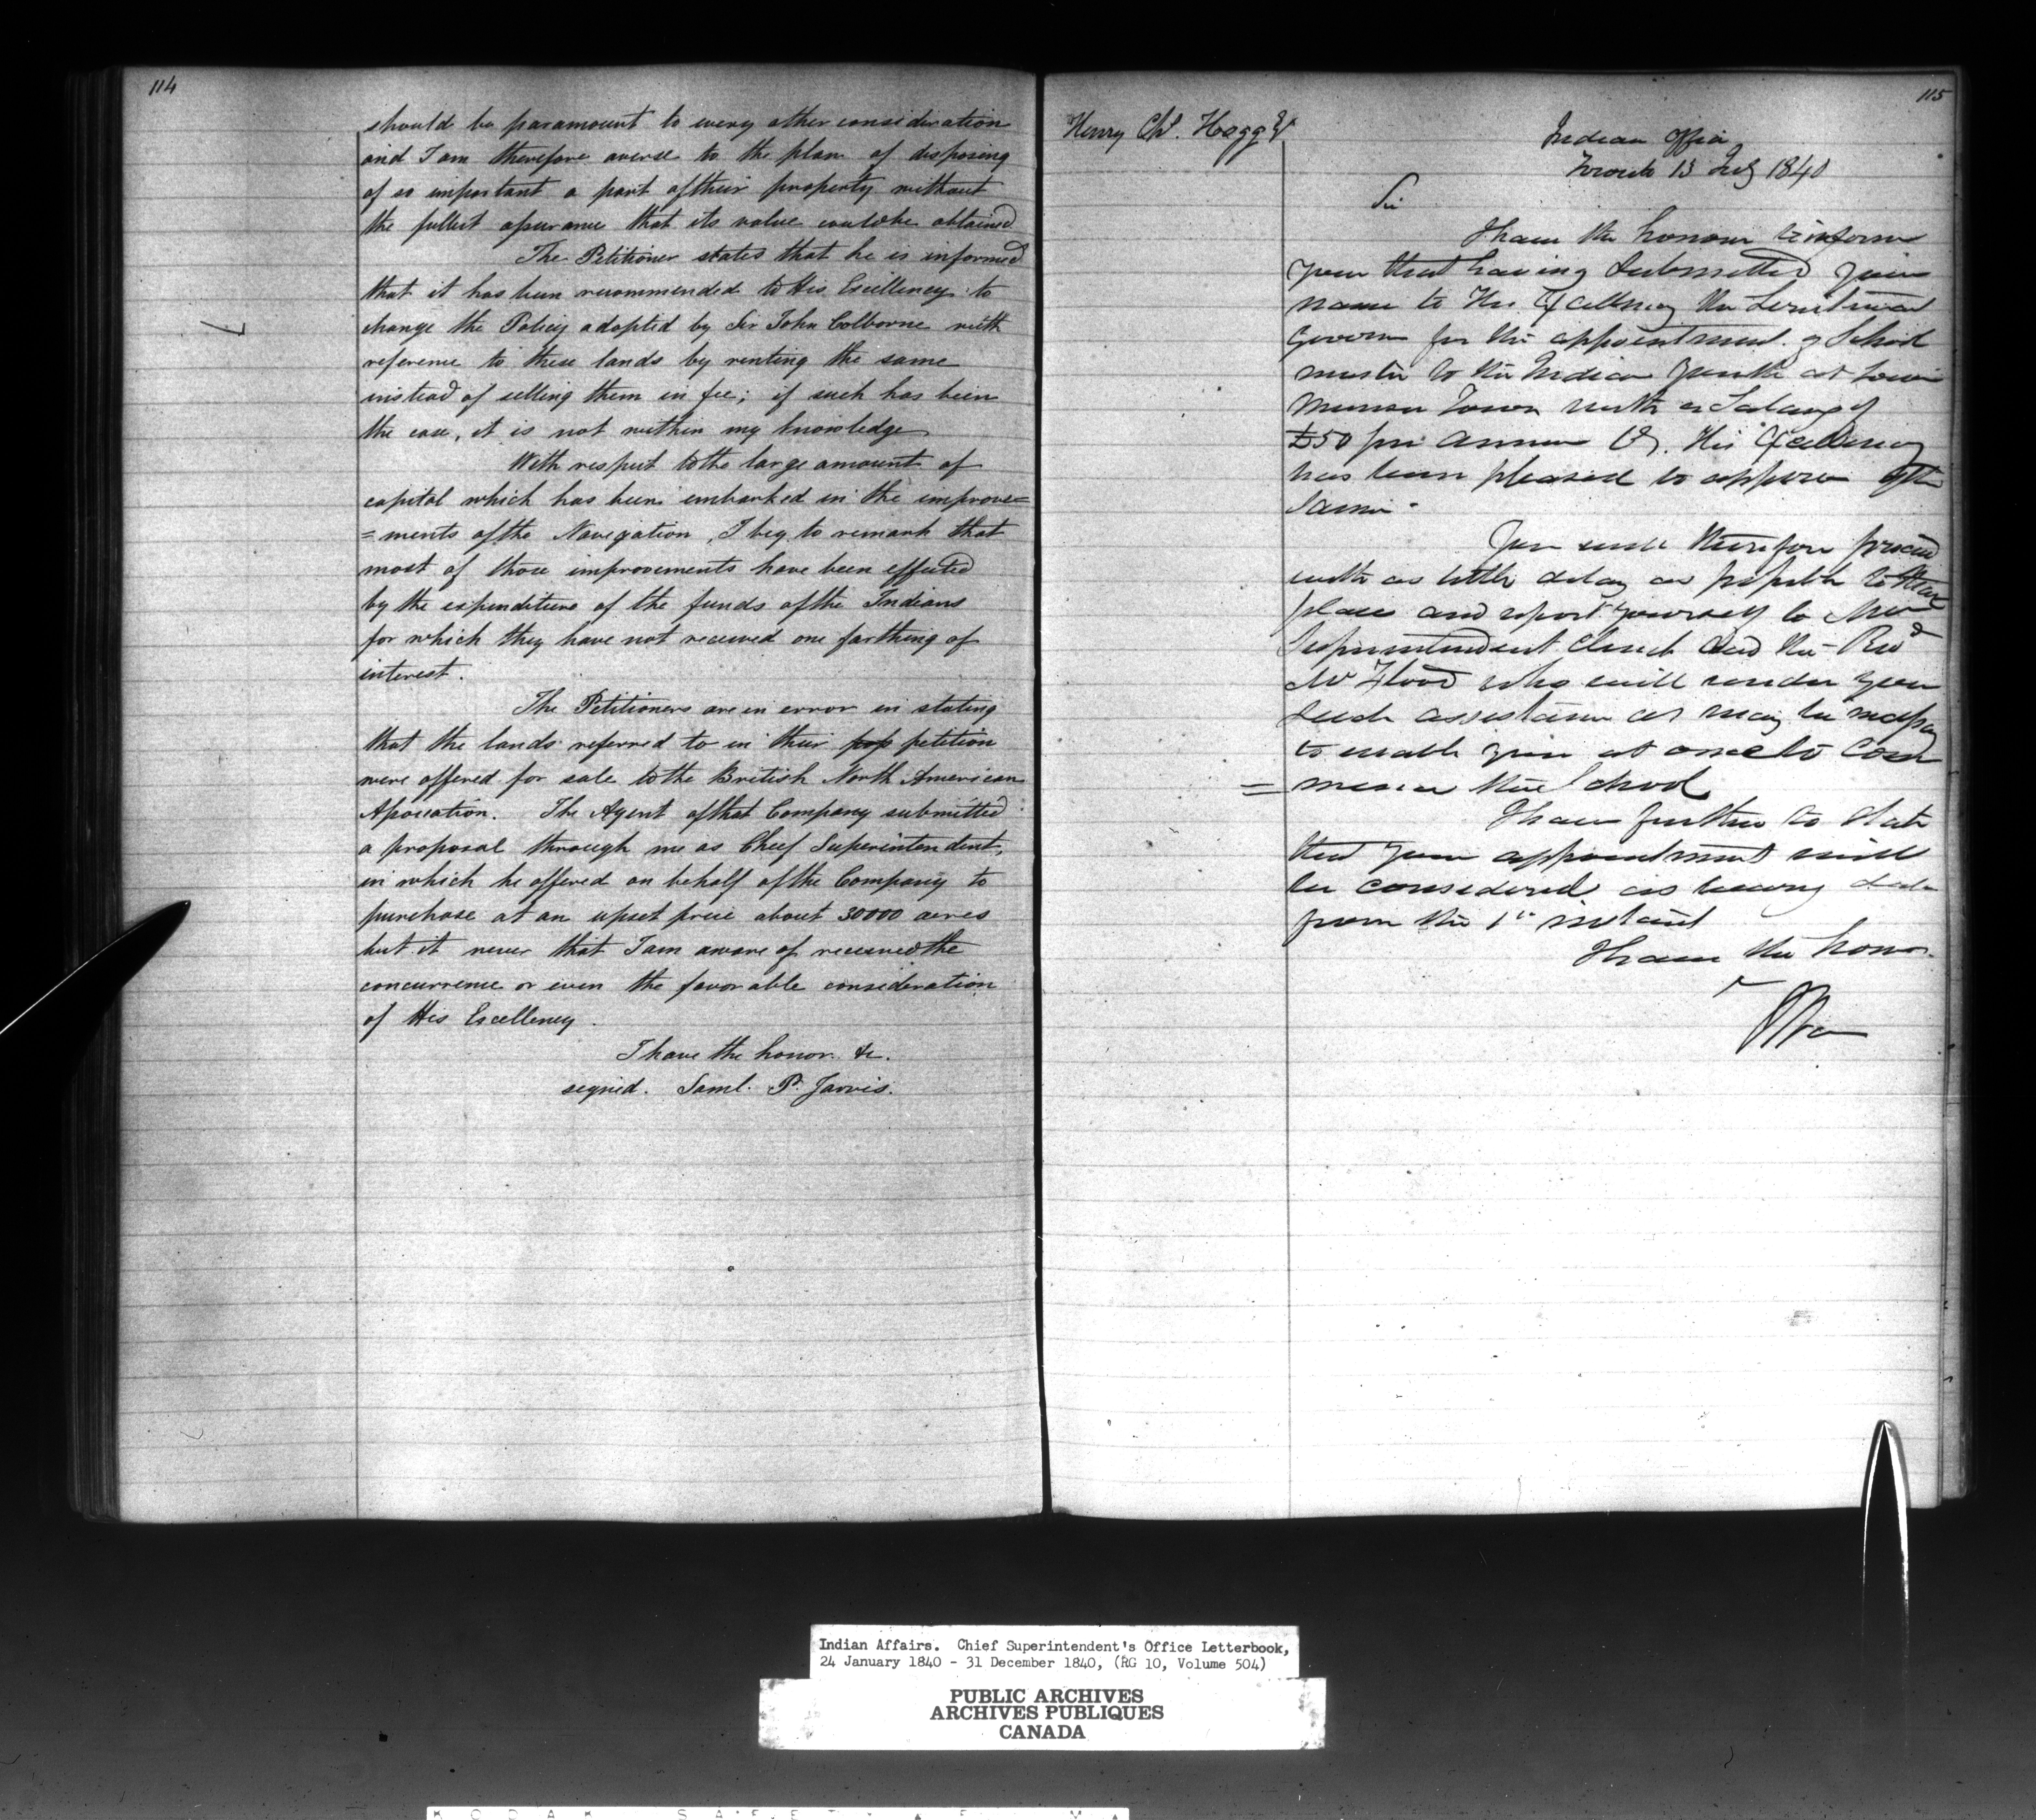 114
should be paramount to every other consideration
and I am therefore averse to the plan of disposing
of so important a part of their property without
the fullest assurance that its value could be obtained
The Petitioner states that he is informed
that it has been recommended to His Excellency to
change the Policy adopted by Sir John Colborne with
reference to these lands by renting the same
instead of selling them in fee; if such has been
the case, it is not within my knowledge
With respect to the large amount of
capital which has been embarked in the improve=
=ments of the Navigation, I beg to remark that
most of those improvements have been effected
by the expenditure of the funds of the Indians
for which they have not received one farthing of
interest.
The Petitioners are in error in stating
that the lands referred to in their petition
were offered for sale to the British North American
Association. The Agent of that Company submitted
a proposal through me as Chief Superintendent,
in which he offered on behalf of the Company to
purchase at an upset price about 30000 acres
but it never that I am aware of received the
concurrence or even the favorable consideration
of His Excellency.
I have the honor &c.
signed. Saml. P. Jarvis.
115
Henry Chs. Hogg
Indian Office
Toronto 13 July 1840
Sir
I have the honour to inform
you that having submitted your
name to His Excellency the Lieutenant
Governor for the appointment of School
master to the Indian Youth at Lower
Munsee Town with a Salary of
£50 per annum Cy. His Excellency
has been pleased to approve of the
same.
You will therefore proceed
with as little delay as possible to that
place and report yourself to Mr
Superintendent Clench and the Revd
Mr Flood who will render you
such assistance as may be necessary
to enable you at once to Com
= mence the School
I have further to state
that your appointment will
be considered as bearing date
from the 1st instant
I have the honor
Indian Affairs. Chief Superintendent's Office Letterbook,
24 January 1840 - 31 December 1840, (RG 10, Volume 504)
PUBLIC ARCHIVES
ARCHIVES PUBLIQUES
CANADA